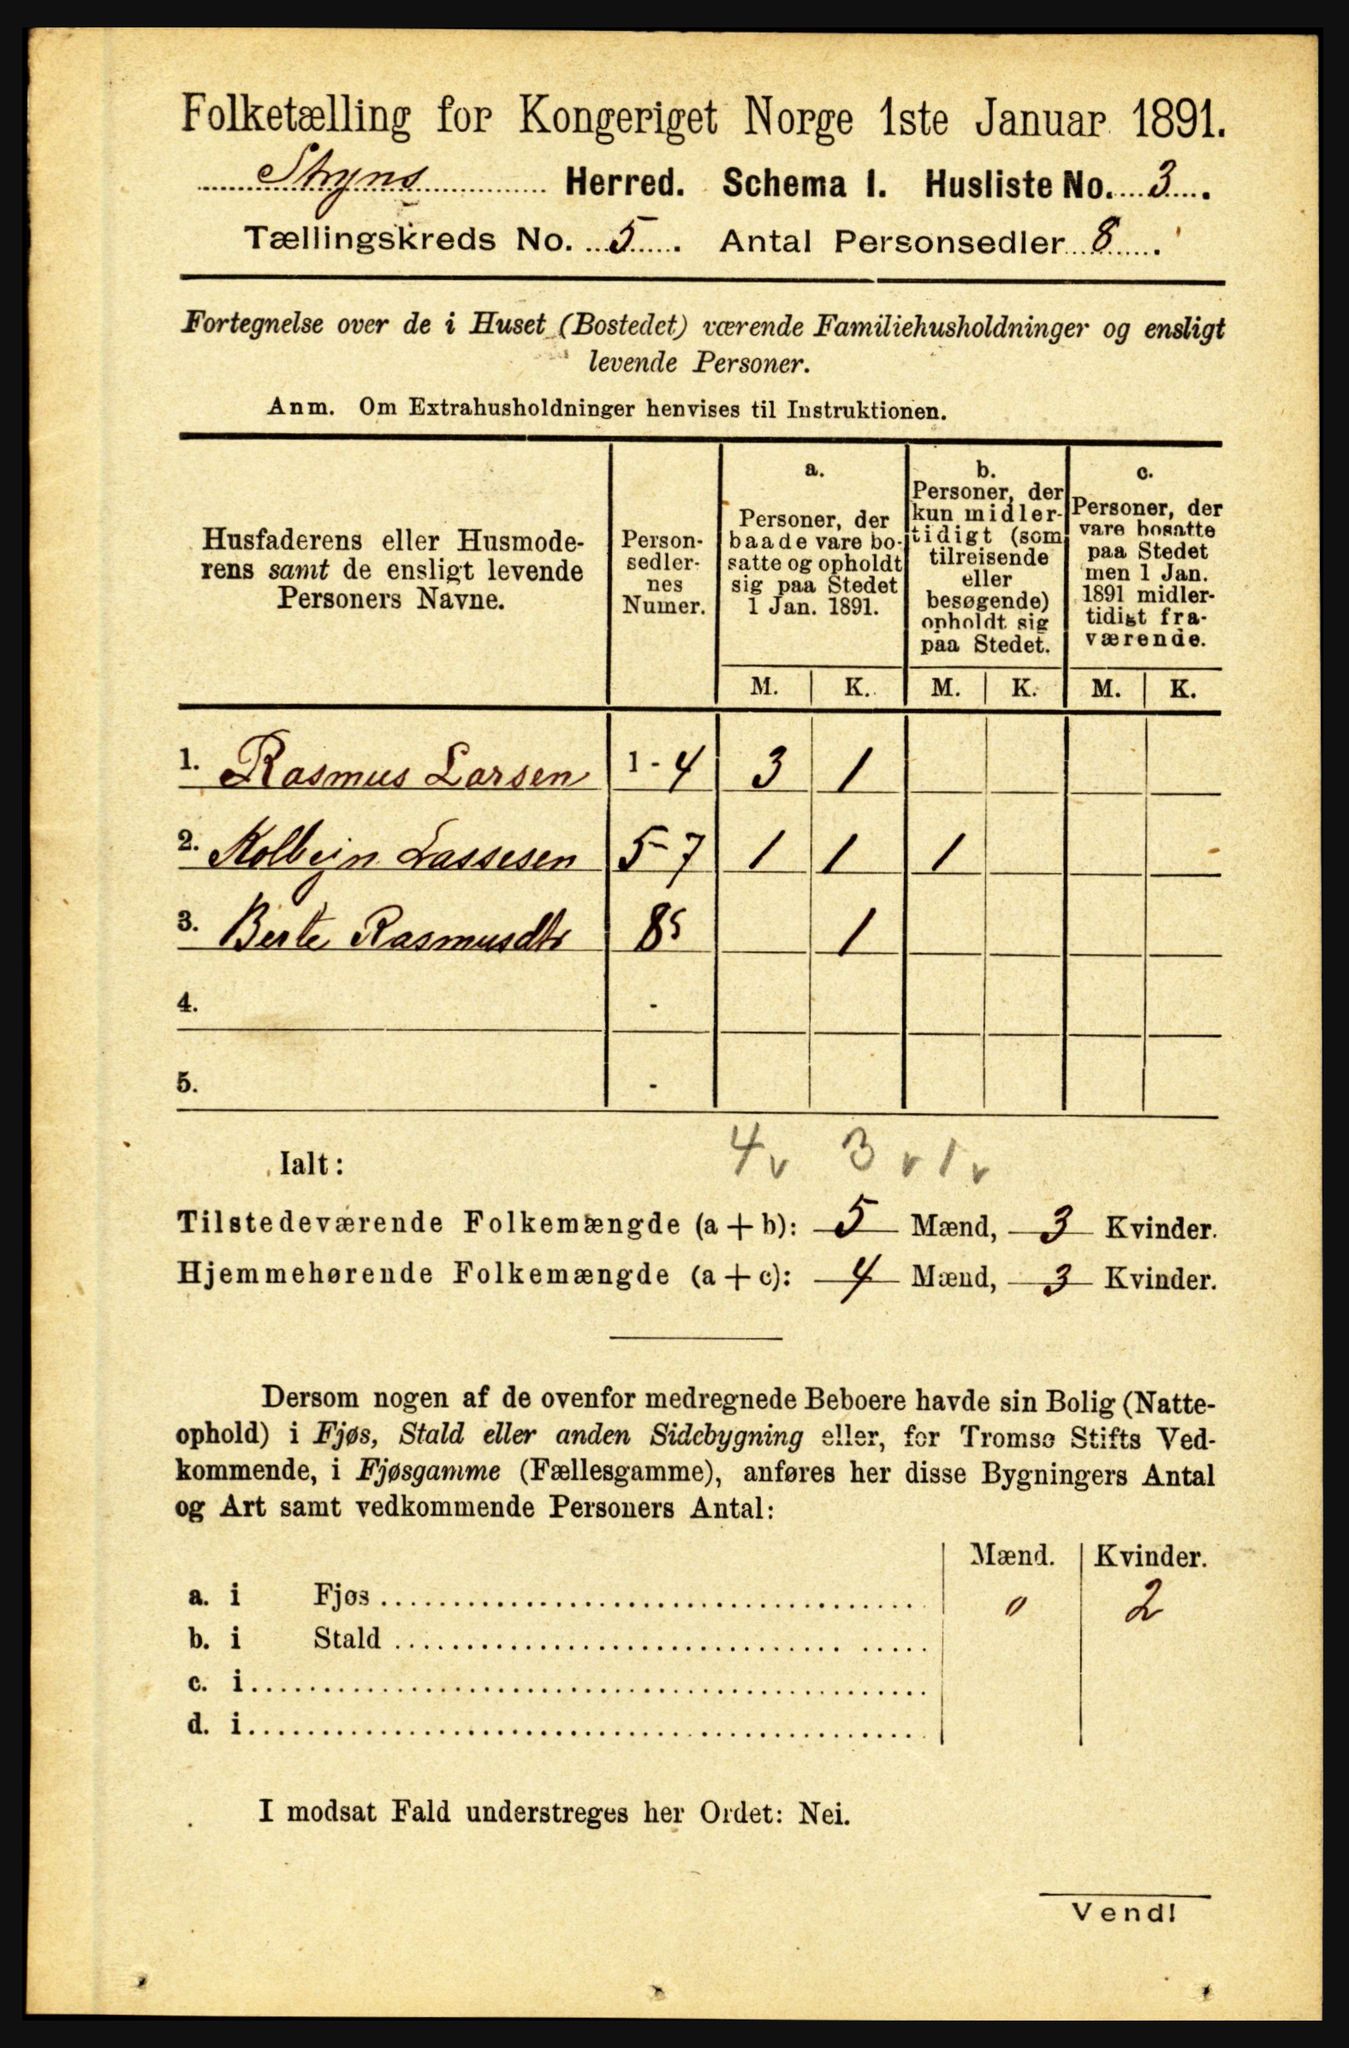 Folketælling for Kongeriget Norge 1ste Januar 1891.
Stryns Herred. Schema I. Husliste No. 3.
Tællingskreds No. 5. Antal Personsedler 8.
Fortegnelse over de i Huset (Bostedet) værende Familiehusholdninger og ensligt
levende Personer.
Anm. Om Extrahusholdninger henvises til Instruktionen.
Husfaderens eller Husmode-
rens samt de ensligt levende
Personers Navne.
Person-
sedler-
nes
Numer.
a.
Personer, der
baade vare bo-
satte og opholdt
sig paa Stedet
1 Jan. 1891.
b.
Personer, der
kun midler-
tidigt (som
tilreisende
eller
besøgende)
opholdt sig
paa Stedet.
c.
Personer, der
vare bosatte
paa Stedet
men 1 Jan.
1891 midler-
tidigt fra-
værende.
M. K. M. K. M. K.
1. Rasmus Larsen 1-4 3 1
2. Kolbein Lassesen 5-7 1 1 1
3. Berte Rasmusdtr 8 1
4. -
5. -
Ialt: 4 v 3 v 1 v
Tilstedeværende Folkemængde (a+b): 5 Mænd, 3 Kvinder.
Hjemmehørende Folkemængde (a+c): 4 Mænd, 3 Kvinder.
Dersom nogen af de ovenfor medregnede Beboere havde sin Bolig (Natte-
ophold) i Fjøs, Stald eller anden Sidebygning eller, for Tromsø Stifts Ved-
kommende, i Fjøsgamme (Fællesgamme), anføres her disse Bygningers Antal
og Art samt vedkommende Personers Antal:
Mænd. Kvinder.
a. i Fjøs 0 2
b. i Stald
c. i
d. i
I modsat Fald understreges her Ordet: Nei.
Vend!